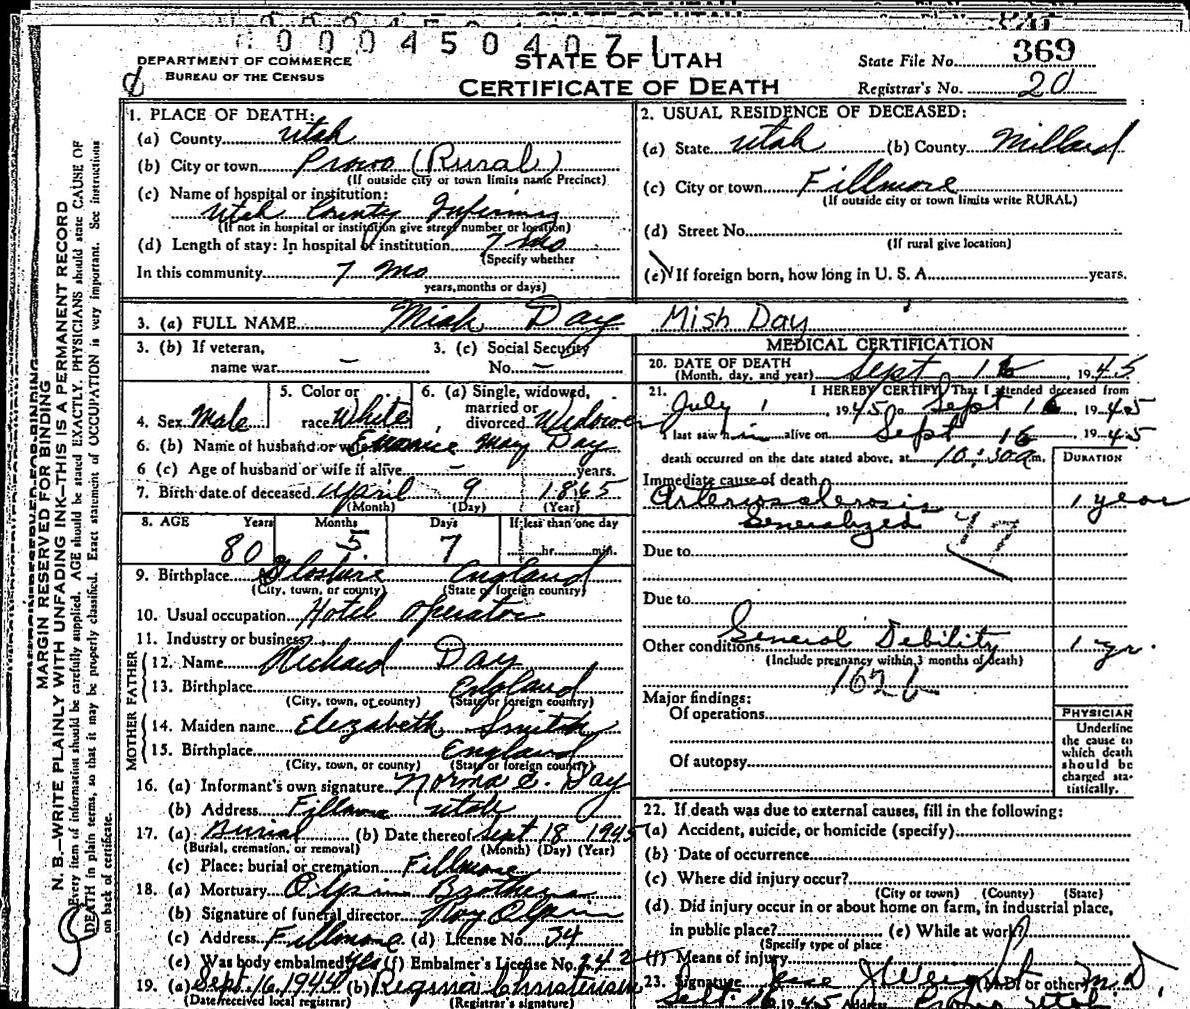 0 0 0 4 5 0 4 0 7 1
DEPARTMENT OF COMMERCE
BUREAU OF THE CENSUS
STATE OF UTAH
CERTIFICATE OF DEATH
State File No. 369
Registrar's No. 20
MARGIN RESERVED FOR BINDING
N. B.—WRITE PLAINLY WITH UNFADING INK—THIS IS A PERMANENT RECORD
Every item of information should be carefully supplied. AGE should be stated EXACTLY. PHYSICIANS should state CAUSE OF
DEATH in plain terms, so that it may be properly classified. Exact statement of OCCUPATION is very important. See instructions
on back of certificate.
1. PLACE OF DEATH:
(a) County Utah
(b) City or town Provo (Rural)
(If outside city or town limits name Precinct)
(c) Name of hospital or institution:
Utah County Infirmry
(If not in hospital or institution give street number or location)
(d) Length of stay: In hospital of institution 7 mo
(Specify whether
In this community 7 mo
years, months or days)
2. USUAL RESIDENCE OF DECEASED:
(a) State Utah (b) County Millard
(c) City or town Fillmore
(If outside city or town limits write RURAL)
(d) Street No.
(If rural give location)
(e) If foreign born, how long in U. S. A. years.
3. (a) FULL NAME Mish Day Mish Day
3. (b) If veteran, name war –
3. (c) Social Security No. –
4. Sex Male
5. Color or race White
6. (a) Single, widowed, married or divorced Widower
6. (b) Name of husband or wife May Day
6 (c) Age of husband or wife if alive – years.
7. Birth date of deceased April 9 1865
(Month) (Day) (Year)
8. AGE Years Months Days If less than one day
80 5 7 hr. min.
9. Birthplace Gloshire England
(City, town, or county) (State or foreign country)
10. Usual occupation Hotel Operator
11. Industry or business
FATHER
12. Name Richard Day
13. Birthplace England
(City, town, or county) (State or foreign country)
MOTHER
14. Maiden name Elizabeth Smith
15. Birthplace England
(City, town, or county) (State or foreign country)
16. (a) Informant's own signature Norma E. Day
(b) Address Fillmore Utah
17. (a) Burial (b) Date thereof Sept 18 1945
(Burial, cremation, or removal) (Month) (Day) (Year)
(c) Place: burial or cremation Fillmore
18. (a) Mortuary Olpin Brothers
(b) Signature of funeral director Roy Olpin
(c) Address Fillmore (d) License No. 34
(e) Was body embalmed Yes (f) Embalmer's License No. 242
19. (a) Sept. 16, 1944 (b) Regina Christensen
(Date received local registrar) (Registrar's signature)
MEDICAL CERTIFICATION
20. DATE OF DEATH
(Month, day, and year) Sept 16, 1945
21. I HEREBY CERTIFY, That I attended deceased from
July 1, 1945 to Sept 16 1945
I last saw him alive on Sept 16 1945
death occurred on the date stated above, at 10:30 a m. DURATION
Immediate cause of death
Arteriosclerosis 1 year
Generalized 97
Due to
Due to
Other conditions General Debility 1 yr.
(Include pregnancy within 3 months of death)
162b
Major findings:
Of operations
Of autopsy
PHYSICIAN
Underline
the cause to
which death
should be
charged sta-
tistically.
22. If death was due to external causes, fill in the following:
(a) Accident, suicide, or homicide (specify)
(b) Date of occurrence
(c) Where did injury occur?
(City or town) (County) (State)
(d) Did injury occur in or about home on farm, in industrial place,
in public place? (e) While at work?
(Specify type of place
(f) Means of injury
23. Signature J Weight (M.D. or other) M.D.
Sept. 16 1945 Address Provo Utah